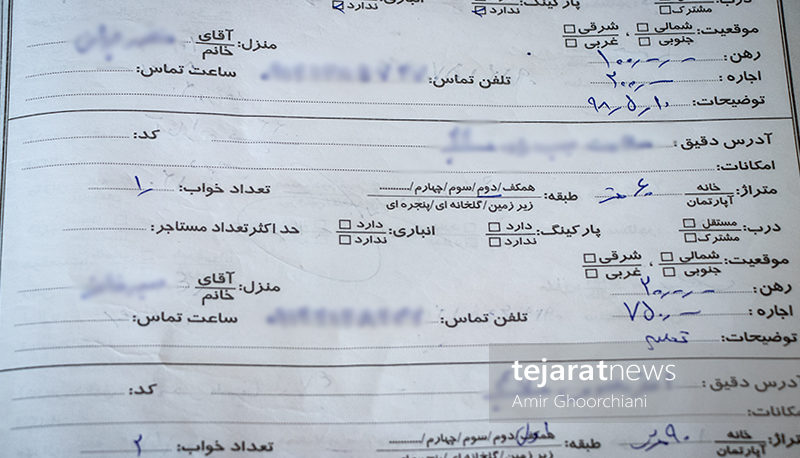 درب: مشترک □ پارکینگ: ندارد انباری: ندارد
موقعیت: شمالی □ جنوبی □ ، شرقی □ غربی □ منزل: آقای خانم
رهن:
اجاره: تلفن تماس: ساعت تماس:
توضیحات: ۹۸٫۵٫۱۰
آدرس دقیق: کد:
امکانات:
متراژ: خانه آپارتمان ۶۰ متر طبقه: همکف/دوم/سوم/چهارم/ زیر زمین/گلخانه ای/پنجره ای تعداد خواب: ۱
درب: مستقل □ مشترک □ پارکینگ: دارد □ ندارد □ انباری: دارد □ ندارد □ حد اکثر تعداد مستاجر:
موقعیت: شمالی □ جنوبی □ ، شرقی □ غربی □ منزل: آقای خانم
رهن:
اجاره: تلفن تماس: ساعت تماس:
توضیحات: تخلیه
tejaratnews
Amir Ghoorchiani
آدرس دقیق: کد:
امکانات:
متراژ: خانه آپارتمان ۹۰ متر طبقه: همکف/دوم/سوم/چهارم/ زیر زمین/گلخانه ای/پنجره ای تعداد خواب: ۲